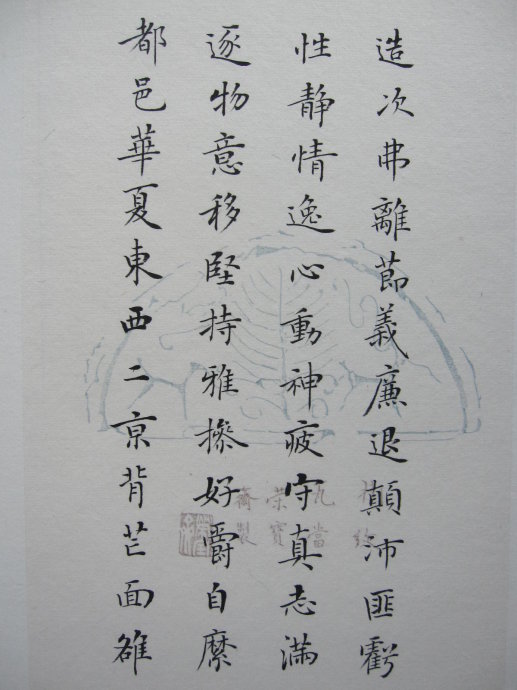 造次弗離莭義廉退顛沛匪虧
性静情逸心動神疲守真志滿
逐物意移堅持雅操好爵自縻
都邑華夏東西二亰背芒面雒
九當
榮寶
齋製